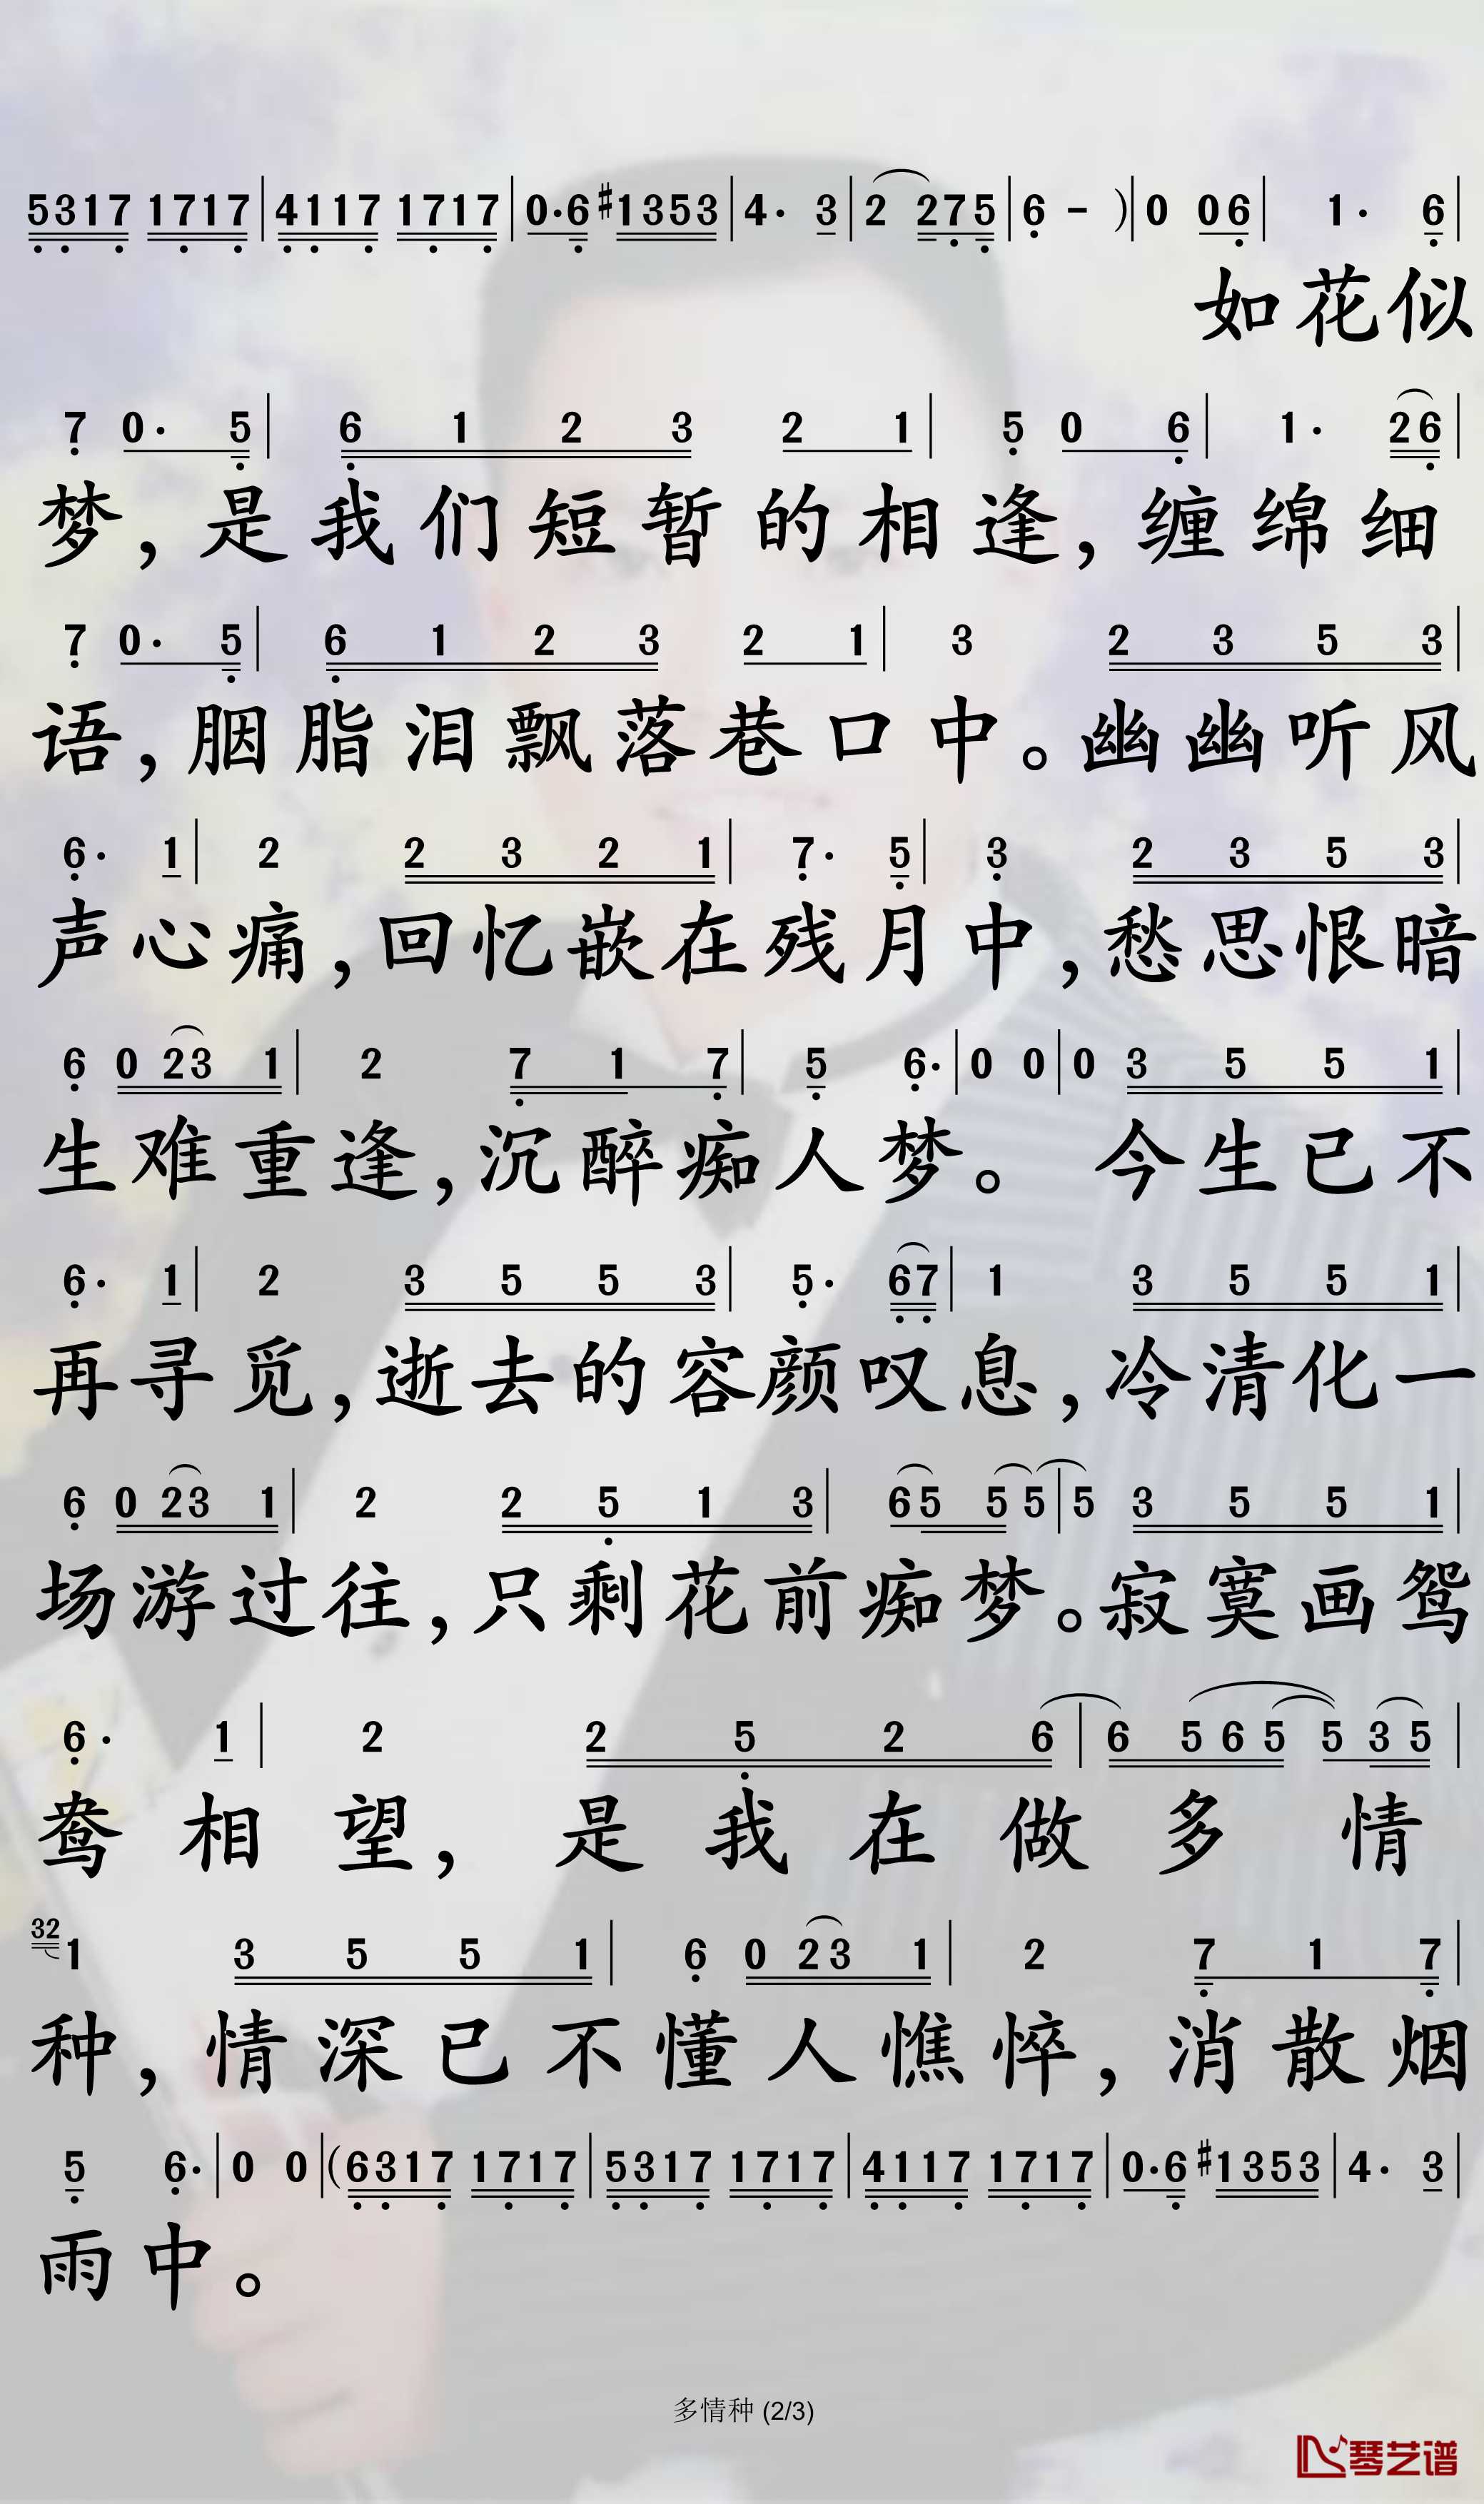 5317 1717 | 4117 1717 | 0·6 #1353 | 4· 3 | 2 275 | 6 - ) | 0 06 | 1· 6 |
如花似
7 0· 5 | 6 1 2 3 2 1 | 5 0 6 | 1· 26 |
梦,是我们短暂的相逢,缠绵细
7 0· 5 | 6 1 2 3 2 1 | 3 2 3 5 3 |
语,胭脂泪飘落巷口中。幽幽听风
6· 1 | 2 2 3 2 1 | 7· 5 | 3 2 3 5 3 |
声心痛,回忆嵌在残月中,愁思恨暗
6 0 23 1 | 2 7 1 7 | 5 6· | 0 0 | 0 3 5 5 1 |
生难重逢,沉醉痴人梦。 今生已不
6· 1 | 2 3 5 5 3 | 5· 67 | 1 3 5 5 1 |
再寻觅,逝去的容颜叹息,冷清化一
6 0 23 1 | 2 2 5 1 3 | 65 5 5 | 5 3 5 5 1 |
场游过往,只剩花前痴梦。寂寞画鸳
6· 1 | 2 2 5 2 6 | 6 5 6 5 5 3 5 |
鸯相望,是我在做多情
32 1 3 5 5 1 | 6 0 23 1 | 2 7 1 7 |
种,情深已不懂人憔悴,消散烟
5 6· | 0 0 | (6317 1717 | 5317 1717 | 4117 1717 | 0·6 #1353 | 4· 3 |
雨中。
多情种 (2/3)
琴艺谱